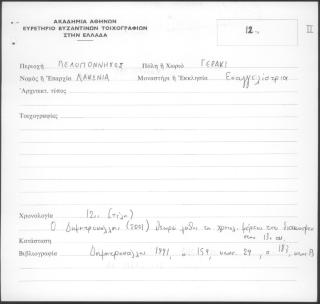 ΑΚΑΔΗΜΙΑ ΑΘΗΝΩΝ
ΕΥΡΕΤΗΡΙΟ ΒΥΖΑΝΤΙΝΩΝ ΤΟΙΧΟΓΡΑΦΙΩΝ
ΣΤΗΝ ΕΛΛΑΔΑ
12
II
Περιοχή ΠΕΛΟΠΟΝΝΗΣΟΣ Πόλη ή Χωριό ΓΕΡΑΚΙ
Νομός ή Ἐπαρχία ΛΑΚΩΝΙΑ Μοναστήρι ή Ἐκκλησία Ευαγγελίστρια
Ἀρχιτεκτ. τύπος
Τοιχογραφίες
Χρονολογία 12ος (τέλη)
Ο Δημητροκάλλης (2001) θεωρεί λάθος τη χρονολ.
στον 13ο αι.
Κατάσταση
Βιβλιογραφία Δημητροκάλλη 1991, 159, 29, 187,